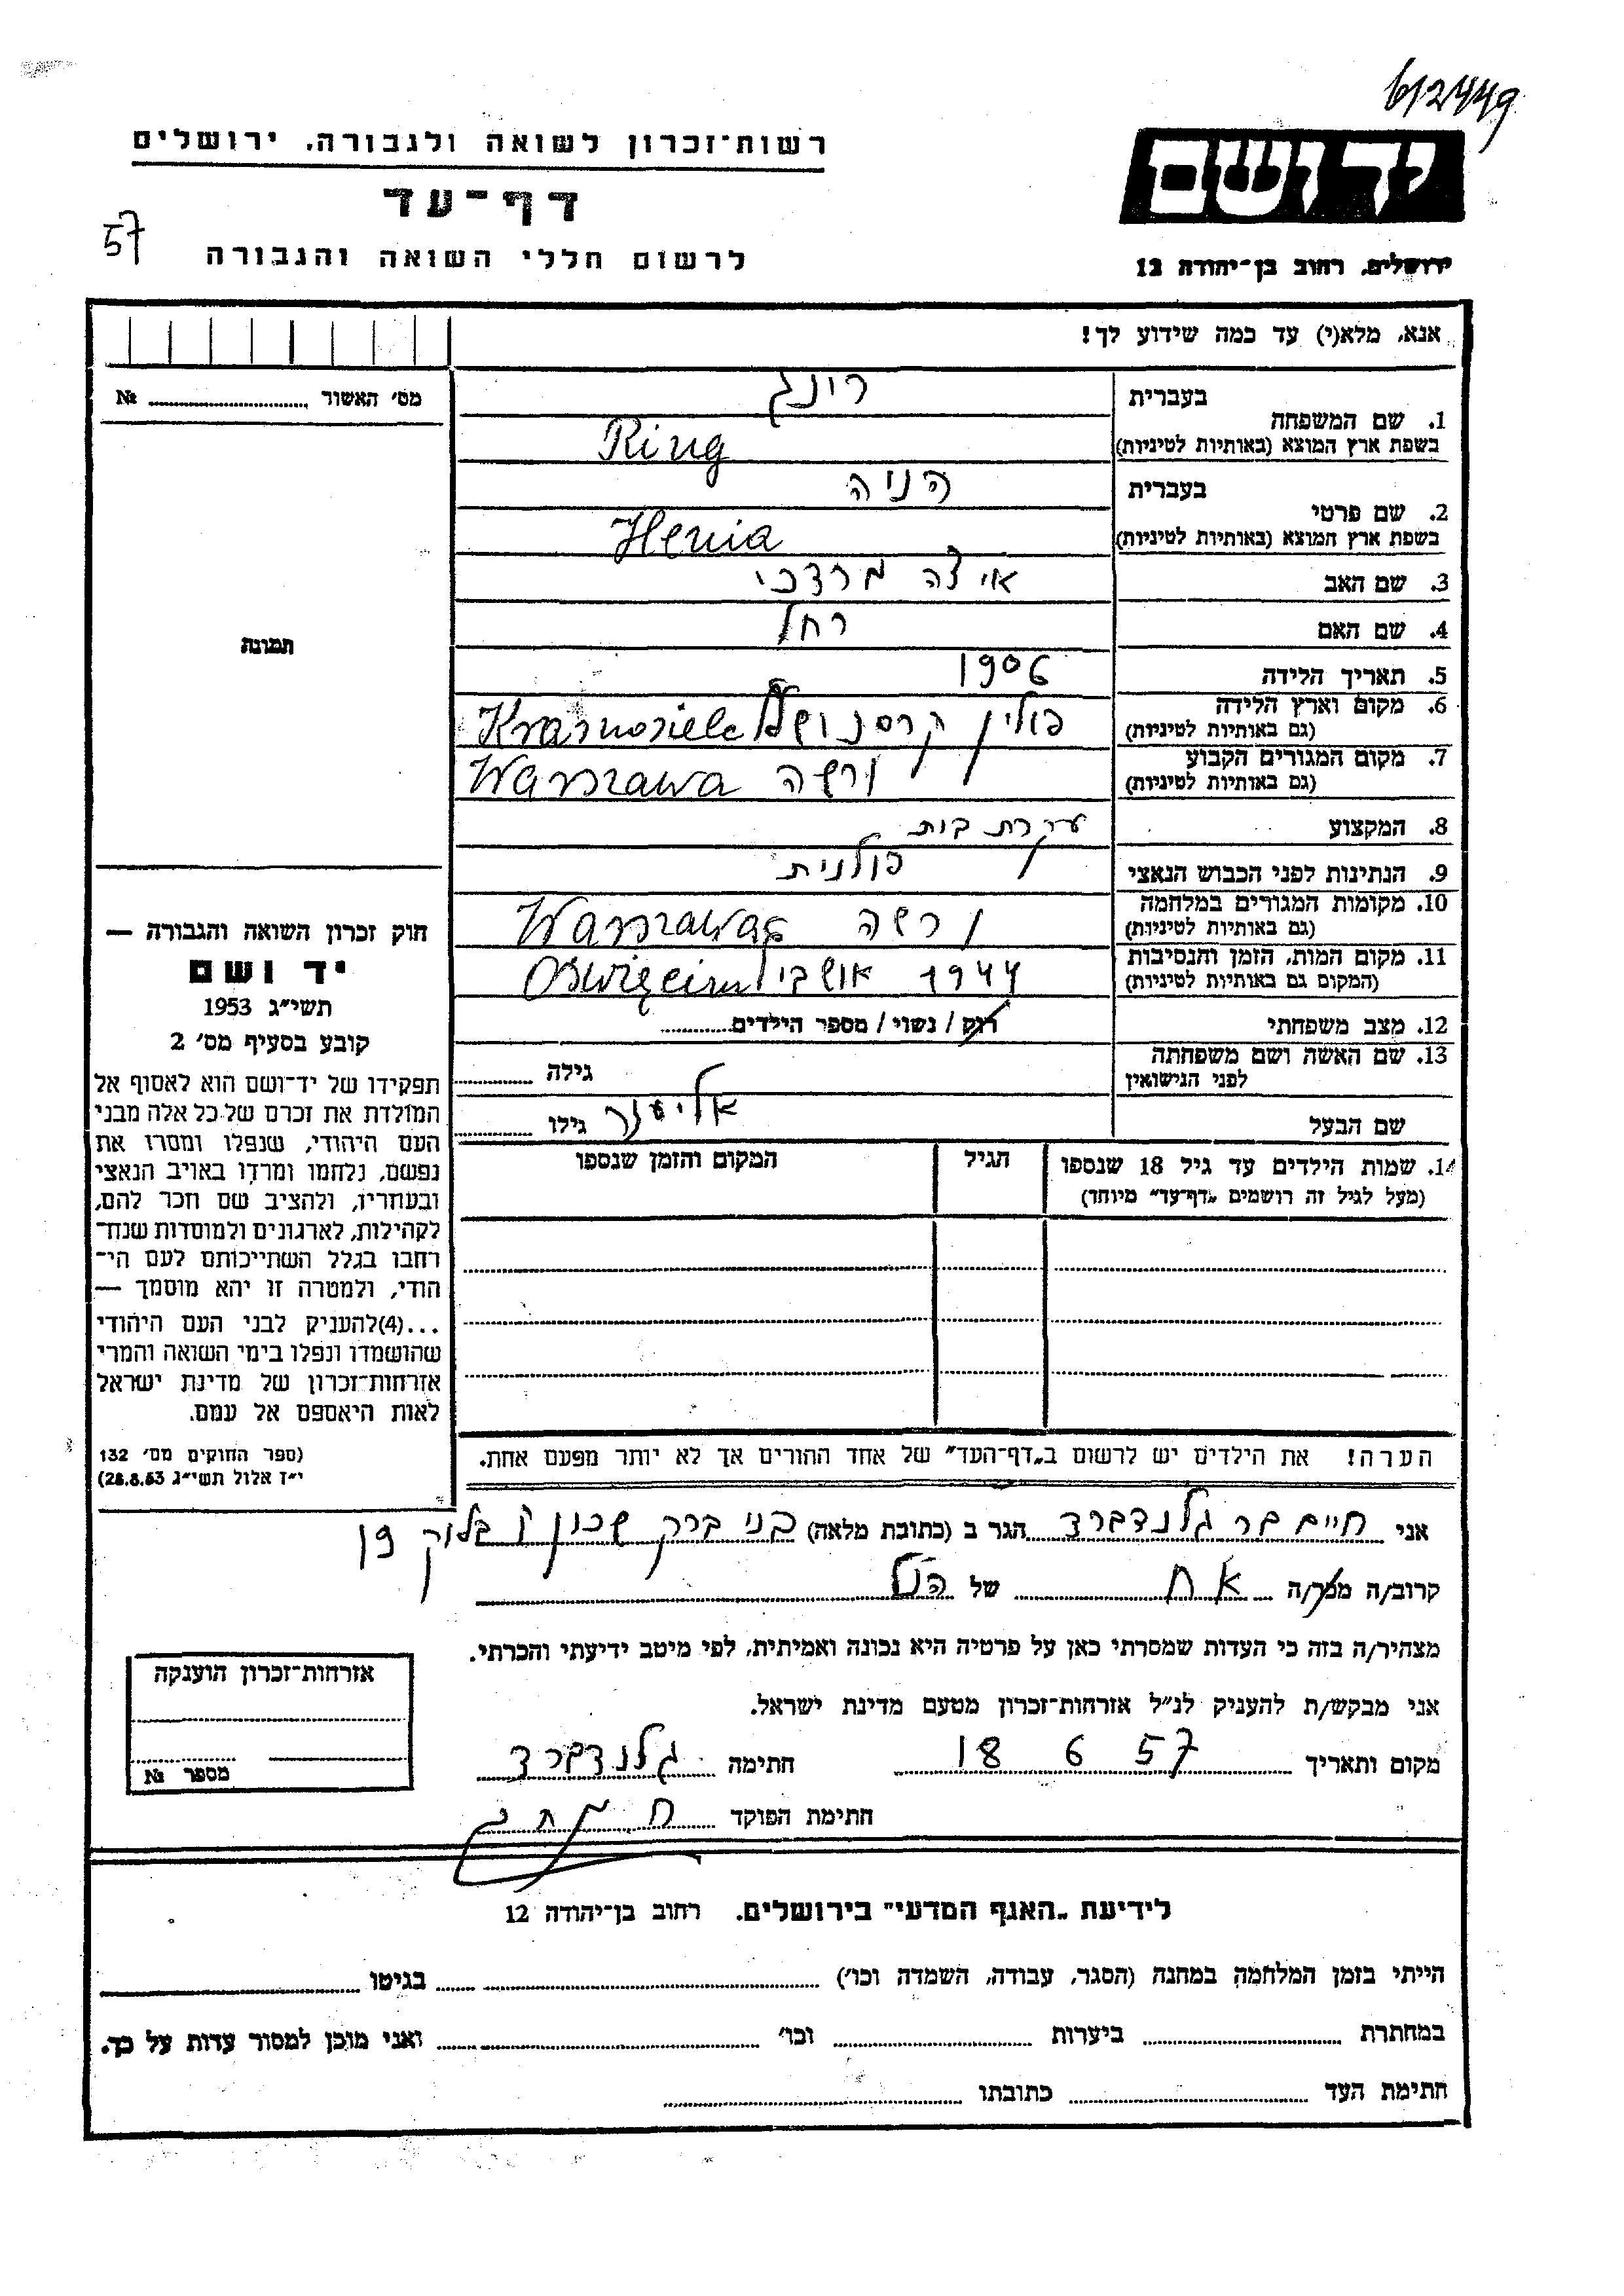 612449
רשות־זכרון לשואה ולגבורה. ירושלים
יד ושם
דף־עד
57
לרשום חללי השואה והגבורה
ירושלים. רחוב בן־יהודה 12
אנא, מלא(י) עד כמה שידוע לך!
מס׳ האשור № 
תמונה
בעברית רינג
1. שם המשפחה
בשפת ארץ המוצא (באותיות לטיניות) Ring
בעברית הניה
2. שם פרטי
בשפת ארץ המוצא (באותיות לטיניות) Henia
3. שם האב איצה מרדכי
4. שם האם רחל
5. תאריך הלידה 1906
6. מקום וארץ הלידה
(גם באותיות לטיניות) פולין Krasnosielc
7. מקום המגורים הקבוע
(גם באותיות לטיניות) ורשה Warszawa
8. המקצוע עקרת בית
9. הנתינות לפני הכבוש הנאצי פולנית
10. מקומות המגורים במלחמה
(גם באותיות לטיניות) ורשה Warszawa
11. מקום המות, הזמן והנסיבות
(המקום גם באותיות לטיניות) 1944 Oświęcim
12. מצב משפחתי רוק / נשוי / מספר הילדים
13. שם האשה ושם משפחתה
לפני הנישואין גילה
שם הבעל גילו
14. שמות הילדים עד גיל 18 שנספו
(מעל לגיל זה רושמים „דף־עד” מיוחד)
הגיל
המקום והזמן שנספו
הערה! את הילדים יש לרשום ב„דף־העד” של אחד ההורים אך לא יותר מפעם אחת.
חוק זכרון השואה והגבורה —
יד ושם
תשי״ג 1953
קובע בסעיף מס׳ 2
תפקידו של יד־ושם הוא לאסוף אל
המולדת את זכרם של כל אלה מבני
העם היהודי, שנפלו ומסרו את
נפשם, נלחמו ומרדו באויב הנאצי
ובעוזריו, ולהציב שם וזכר להם,
לקהילות, לארגונים ולמוסדות שנח־
רחבו בגלל השתייכותם לעם הי־
הודי, ולמטרה זו יהא מוסמך —
...(4) להעניק לבני העם היהודי
שהושמדו ונפלו בימי השואה והמרי
אזרחות־זכרון של מדינת ישראל
לאות היאספם אל עמם.
(ספר החוקים מס׳ 132
י״ז אלול תשי״ג 28.8.53)
אני חיים בר גלנדברד הגר ב (כתובת מלאה) בני ברק שכון בלוק 19
קרוב/ה מכר/ה אח של הנ״ל
מצהיר/ה בזה כי העדות שמסרתי כאן על פרטיה היא נכונה ואמיתית, לפי מיטב ידיעתי והכרתי.
אני מבקש/ת להעניק לנ״ל אזרחות־זכרון מטעם מדינת ישראל.
מקום ותאריך 18 6 57 חתימה גלנדברד
חתימת הפוקד
אזרחות־זכרון הוענקה
מספר №
לידיעת „האגף המדעי” בירושלים. רחוב בן־יהודה 12
הייתי בזמן המלחמה במחנה (הסגר, עבודה, השמדה וכו׳) בגיטו
במחתרת ביערות וכו׳ ואני מוכן למסור עדות על כך.
חתימת העד כתובתו